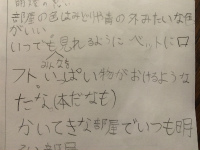 部屋の色はみどりや青の木みたいな色
がいい。
いつでも見れるようにベットに口
フト いっぱい物がおけるような
たな(本だなも)
かいてきな部屋でいつも明
るい部屋